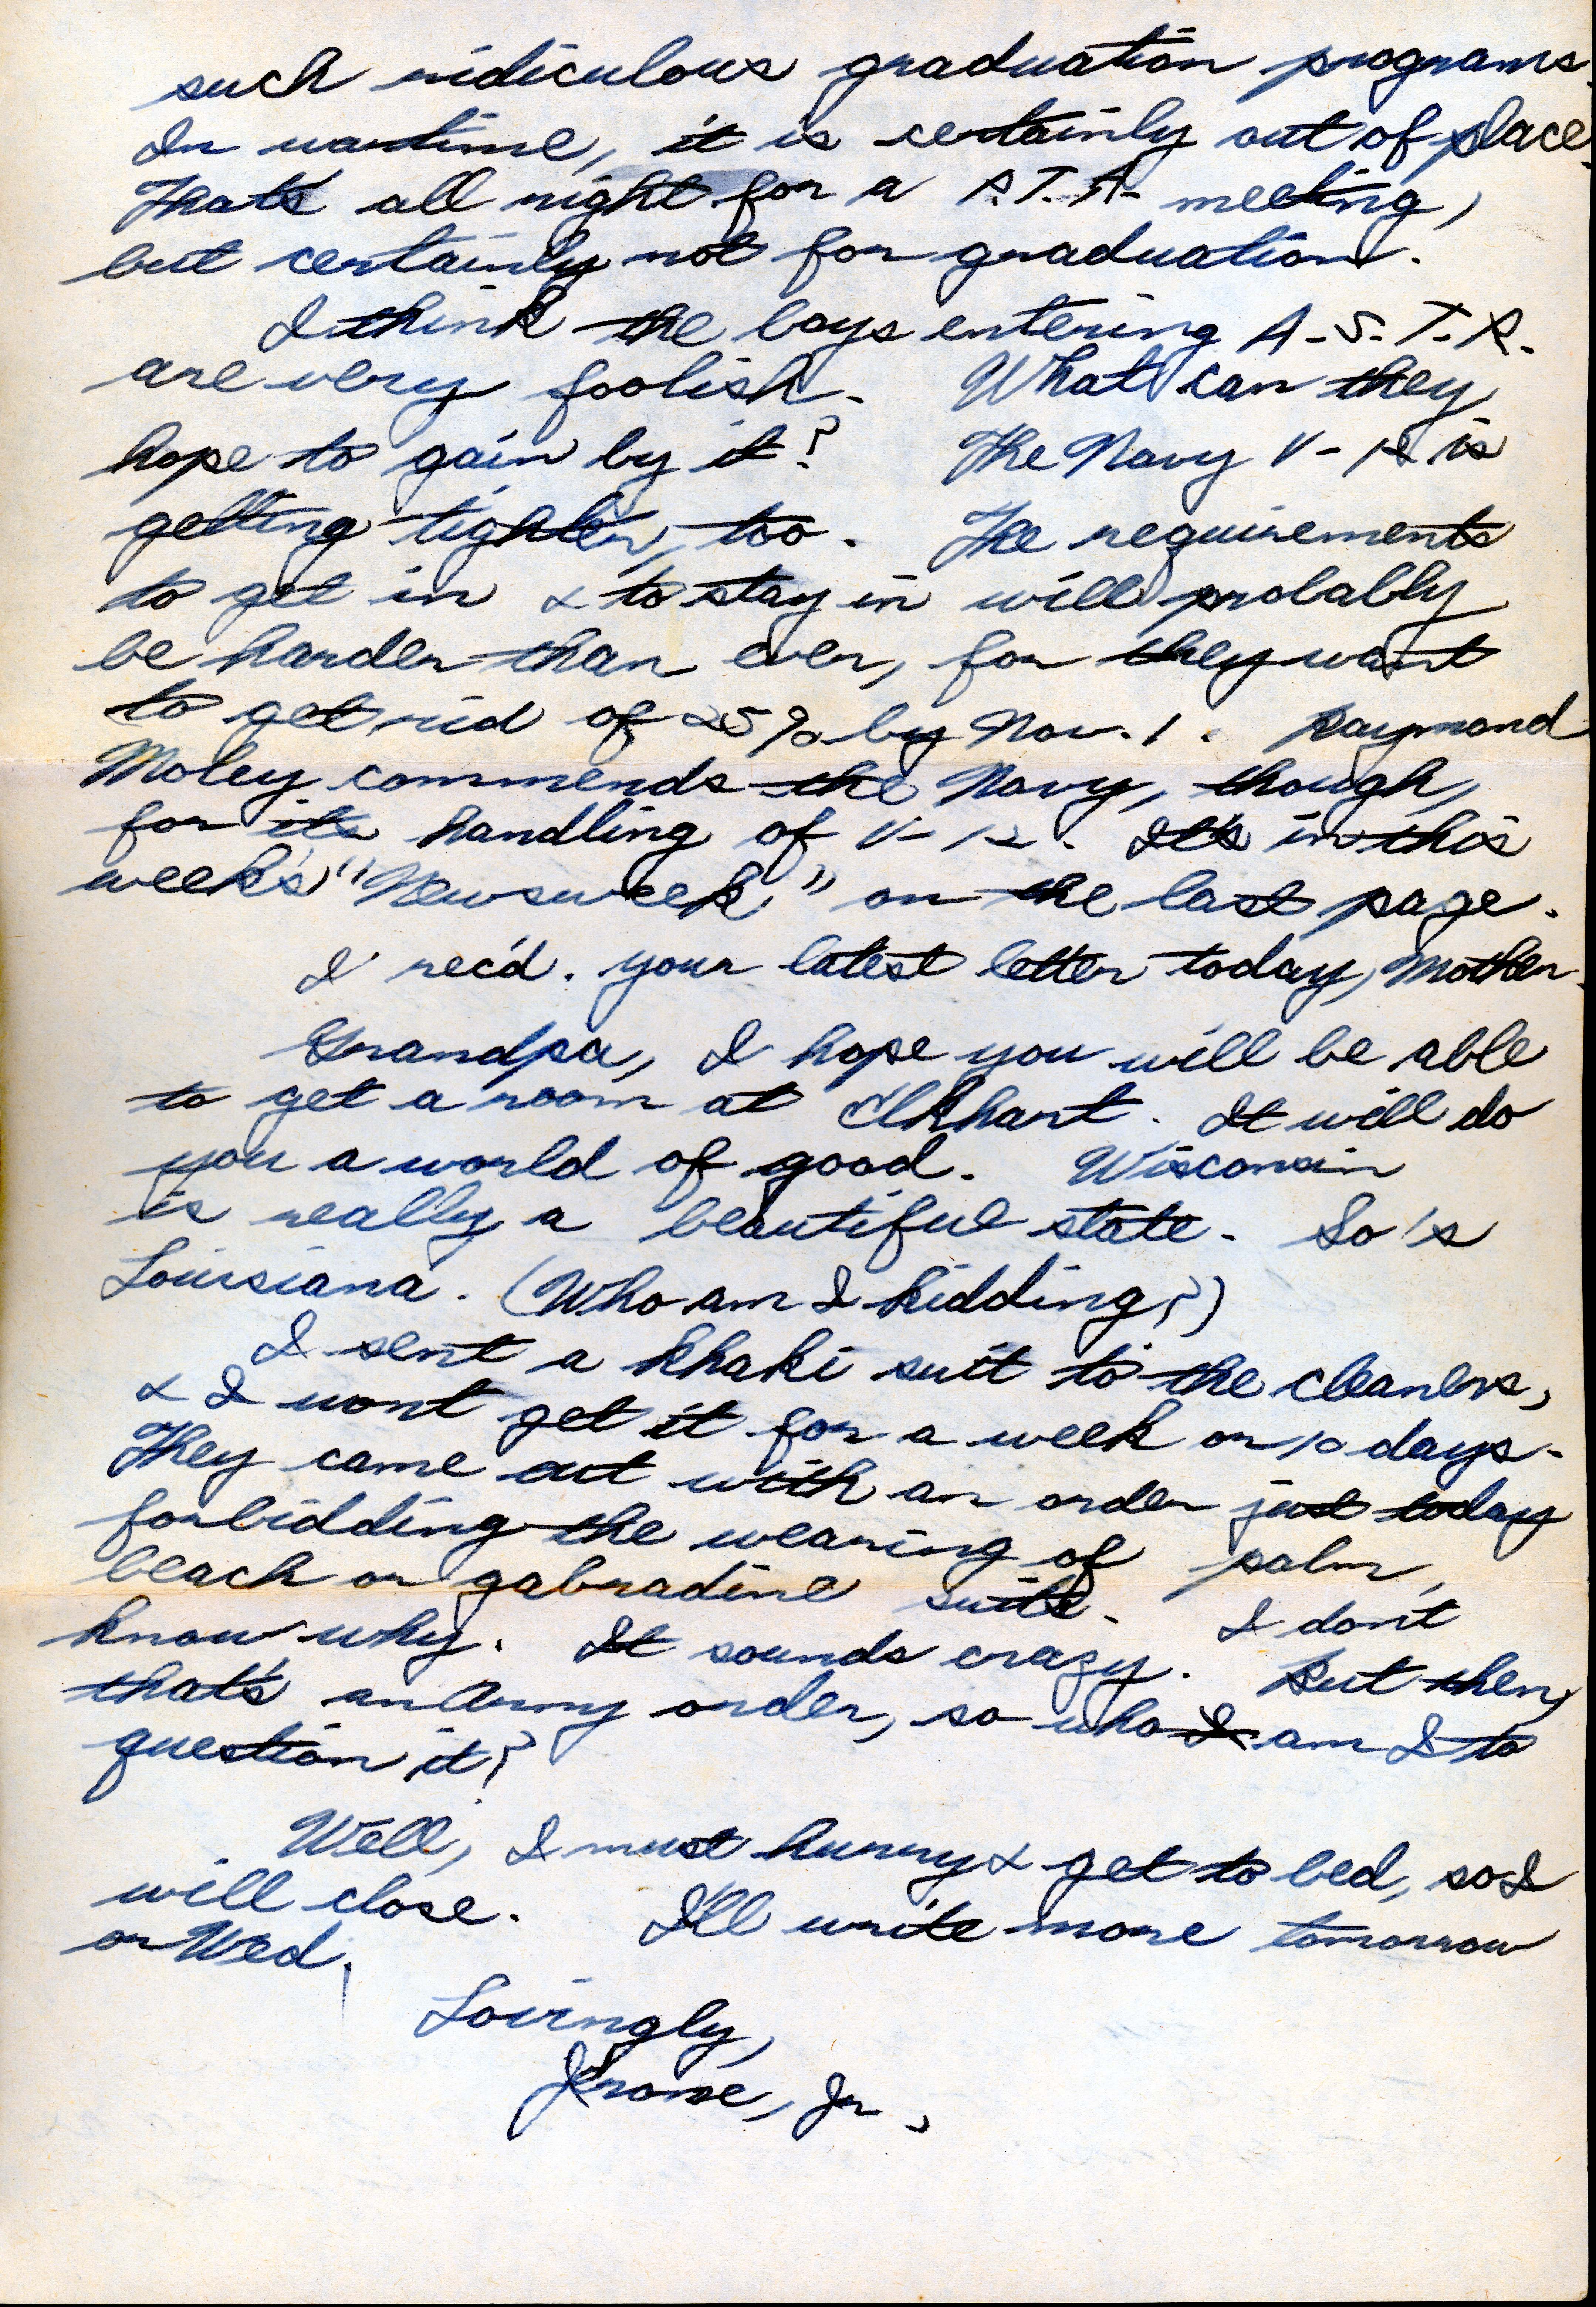 such ridiculous graduation programs.
In wartime, it is certainly out of place.
That's all right for a P.T.A. meeting,
but certainly not for graduation.
I think the boys entering A.S.T.P.
are very foolish. What can they
hope to gain by it? The Navy V-12 is
getting tighter, too. The requirements
to get in & to stay in will probably
be harder than ever, for they want
to get rid of 25% by Nov. 1. Raymond
Moley commends the Navy, though,
for its handling of V-12. It's in this
week's "Newsweek" on the last page.
I rec'd. your latest letter today, Mother.
Grandpa, I hope you will be able
to get a room at Elkhart. It will do
you a world of good. Wisconsin
is really a beautiful state. So's
Louisiana. (Who am I kidding?)
I sent a khaki suit to the cleaners,
& I wont get it for a week or 10 days.
They came out with an order just today
forbidding the wearing of palm
beach or gabradine suits. I don't
know why. It sounds crazy. But then,
that's an Army order, so who I am I to
question it?
Well, I must hurry & get to bed, so I
will close. I'll write more tomorrow
or Wed.
Lovingly,
Jerome, Jr.